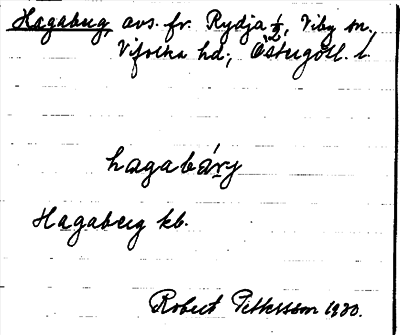 Hagaberg, avs. fr. Rydja 1/2, Viby sn.,
Vifolka hd., Östergötl. l.
hagabáry
Hagaberg kb.
Robert Pettersson 1930.